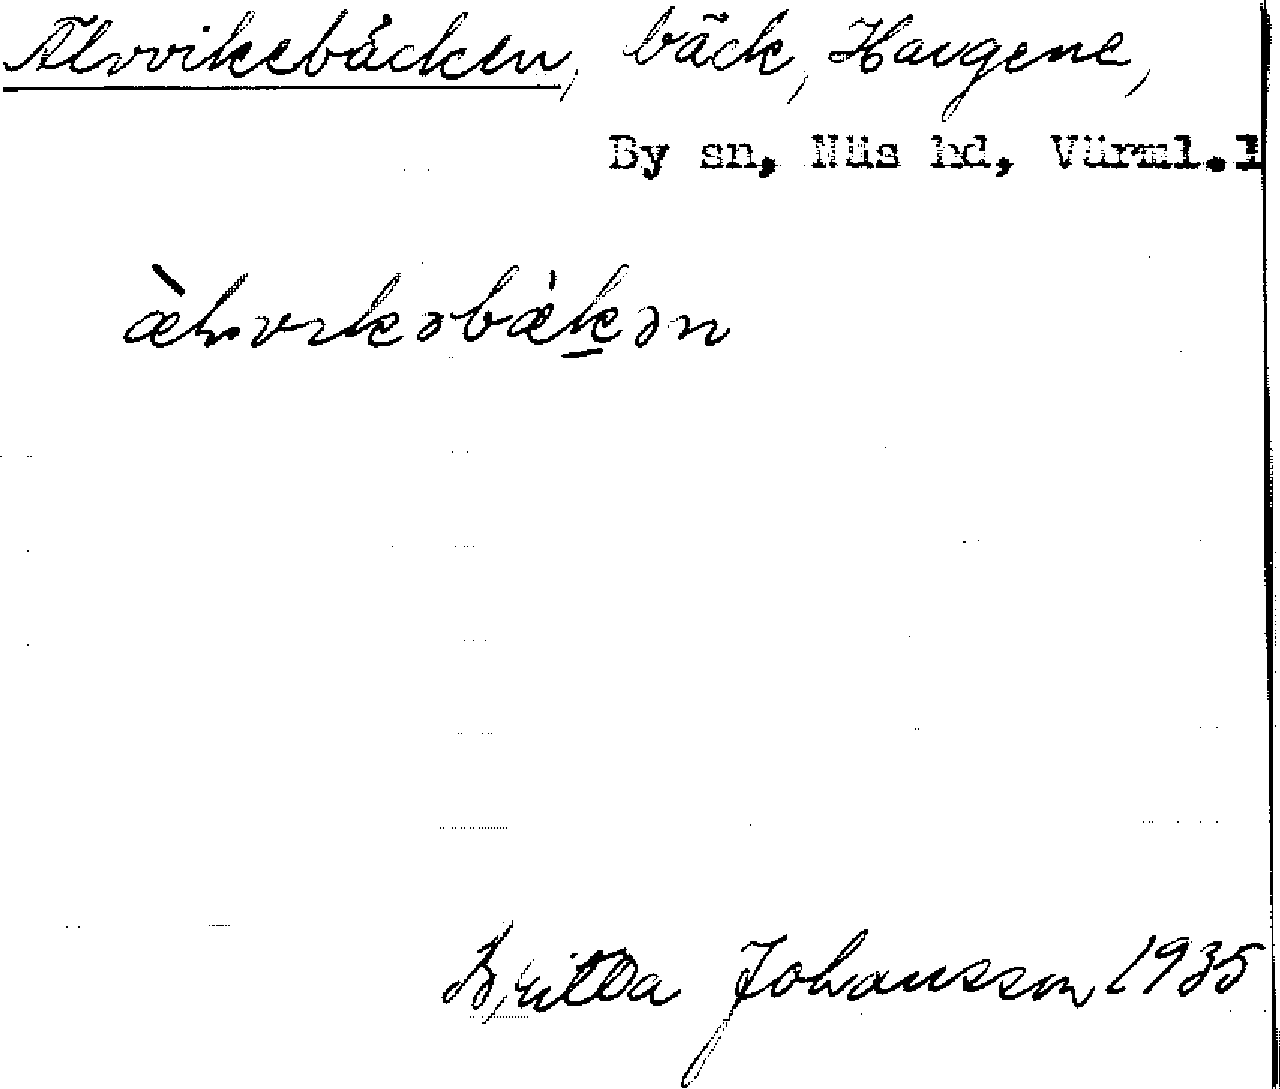 Älvvikebäcken, bäck, Haugene,
By sn, Näs hd, Värml.l
Britta Johansson 1935